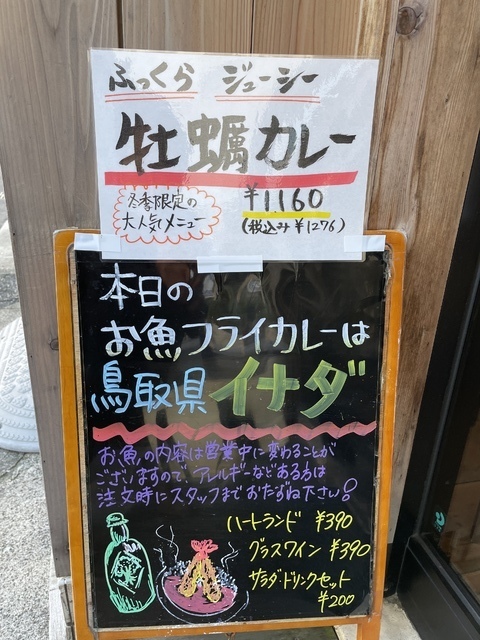 ふっくら ジューシー
牡蠣カレー
冬季限定の
大人気メニュー
¥1160
(税込み¥1276)
本日の
お魚フライカレーは
鳥取県イナダ
お魚の内容は営業中に変わることが
ございますので アレルギーなどある方は
注文時にスタッフまでおたずね下さい!
ハートランド ¥390
グラスワイン ¥390
サラダ・ドリンクセット
¥200